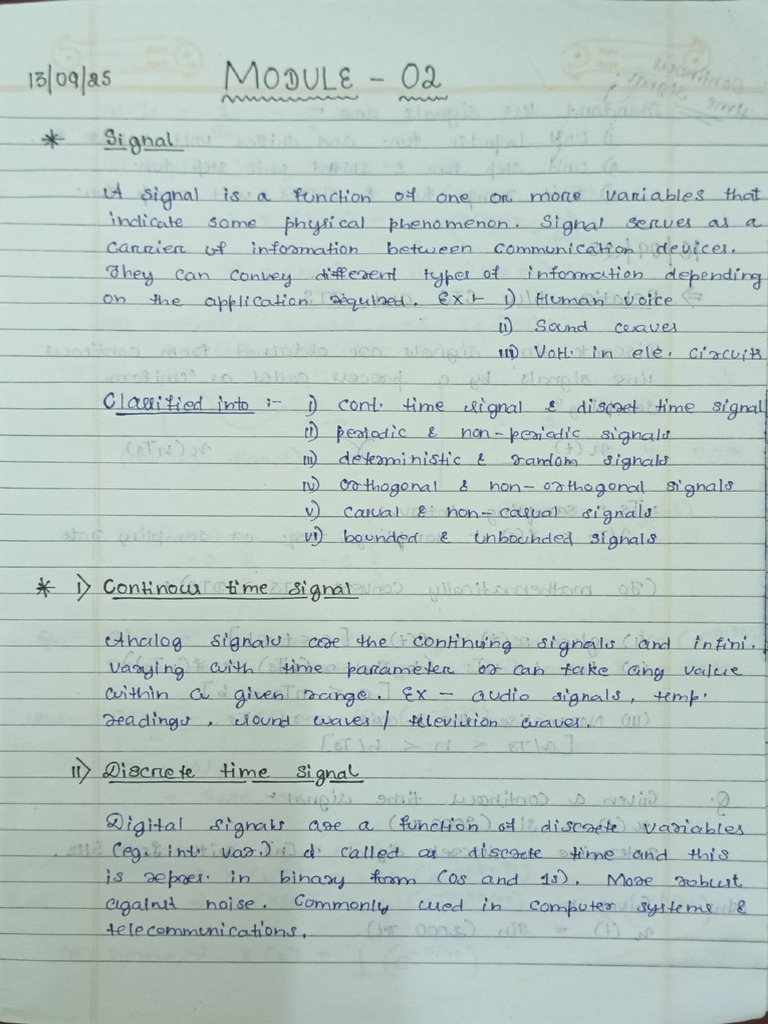 13/09/25 MODULE - 02
* Signal
A signal is a function of one or more variables that
indicate some physical phenomenon. Signal serves as a
carrier of information between communication devices.
They can convey different types of information depending
on the application required. Ex :- i) Human voice
ii) Sound waves
iii) Volt. in ele. circuits
Classified into :- i) cont. time signal & discret time signal
ii) periodic & non-periodic signals
iii) deterministic & random signals
iv) orthogonal & non-orthogonal signals
v) casual & non-casual signals
vi) bounded & unbounded signals
* i) Continous time signal
Analog signals are the continuing signals and infini.
varying with time parameter or can take any value
within a given range. Ex - audio signals, temp.
readings, sound waves / television waves.
ii) Discrete time signal
Digital signals are a function of discrete variables
(eg. int. var.) & called as discrete time and this
is repres. in binary form (0s and 1s). More robust
against noise. Commonly used in computer systems &
telecommunications.